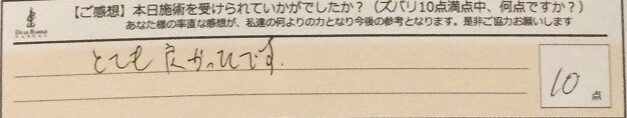 【ご感想】本日施術を受けられていかがでしたか？（ズバリ10点満点中、何点ですか？）
あなた様の率直な感想が、私達の何よりの力となり今後の参考となります。是非ご協力お願いします
とても良かったです。
10点